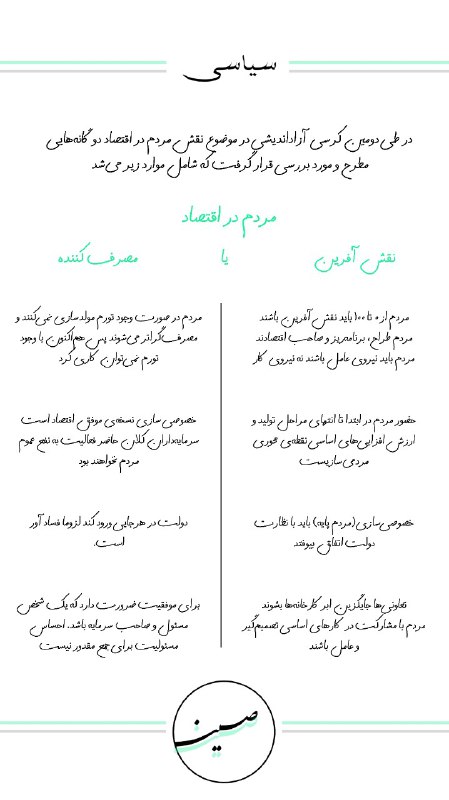 سیاسی
در طی دومین کرسی آزاداندیشی در موضوع نقش مردم در اقتصاد دوگانه‌هایی
مطرح و مورد بررسی قرار گرفت که شامل موارد زیر می‌شد
مردم در اقتصاد
نقش آفرین یا مصرف کننده
مردم از ۰ تا ۱۰۰ باید نقش آفرین باشند
مردم طراح، برنامه‌ریز و صاحب اقتصادند
مردم باید نیروی عامل باشند نه نیروی کار
مردم در صورت وجود تورم مولدسازی نمی‌کنند و
مصرف‌گراتر می‌شوند پس هم‌اکنون با وجود
تورم نمی‌توان کاری کرد
حضور مردم در ابتدا تا انتهای مراحل تولید و
ارزش افزایی‌های اساسی نقطه‌ی محوری
مردمی سازیست
خصوصی سازی نسخه‌ی موفق اقتصاد است
سرمایه‌داران کلان حاضر فعالیت به نفع عموم
مردم نخواهند بود
خصوصی‌سازی (مردم پایه) باید با نظارت
دولت اتفاق بیوفتد
دولت در هرجایی ورود کند لزوما فساد آور
است.
تعاونی‌ها جایگزین ابر کارخانه‌ها بشوند
مردم با مشارکت در کارهای اساسی تصمیم‌گیر
و عامل باشند
برای موفقیت ضرورت دارد که یک شخص
مسئول و صاحب سرمایه باشد. احساس
مسئولیت برای جمع مقدور نیست
صین